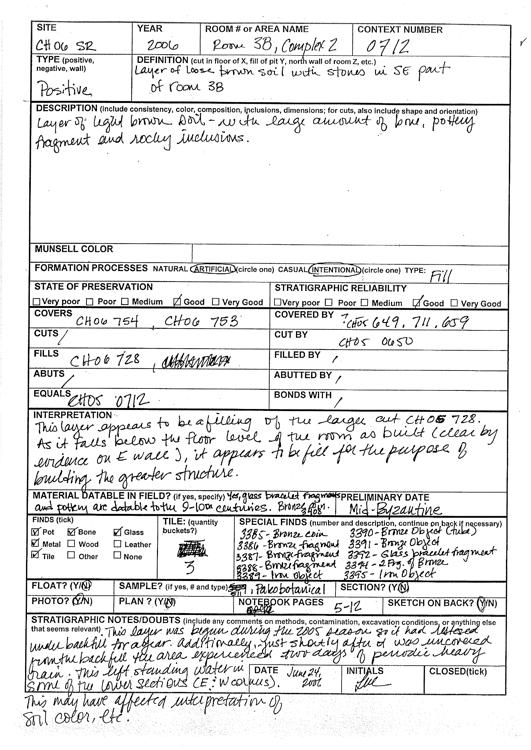 SITE YEAR ROOM # or AREA NAME CONTEXT NUMBER
CH06 SR 2006 Room 3B, Complex 2 0712
TYPE (positive, negative, wall) DEFINITION (cut in floor of X, fill of pit Y, north wall of room Z, etc.)
Positive Layer of loose brown soil with stones in SE part
of room 3B
DESCRIPTION (include consistency, color, composition, inclusions, dimensions; for cuts, also include shape and orientation)
Layer of light brown soil - with large amount of bone, pottery
fragment and rocky inclusions.
MUNSELL COLOR
FORMATION PROCESSES NATURAL ARTIFICIAL (circle one) CASUAL INTENTIONAL (circle one) TYPE: Fill
STATE OF PRESERVATION STRATIGRAPHIC RELIABILITY
Very poor Poor Medium Good Very Good Very poor Poor Medium Good Very Good
COVERS CH06 754, CH06 753 COVERED BY CH05 649, 711, 659
CUTS / CUT BY CH05 0650
FILLS CH06 728, FILLED BY /
ABUTS / ABUTTED BY /
EQUALS CH05 0712 BONDS WITH /
INTERPRETATION
This layer appears to be a filling of the larger cut CH05 728.
As it falls below the floor level of the room as built (clear by
evidence on E wall), it appears to be fill for the purpose of
building the greater structure.
MATERIAL DATABLE IN FIELD? (if yes, specify) Yes, glass bracelet fragments PRELIMINARY DATE
and pottery are datable to the 9-10th centuries. Bronze Coin. 3408 Mid-Byzantine
FINDS (tick) TILE: (quantity buckets?) SPECIAL FINDS (number and description, continue on back if necessary)
Pot Bone Glass
Metal Wood Leather
Tile Other None
3
3385- Bronze coin 3390- Bronze Object (tube)
3386- Bronze fragment 3391- Bronze Object
3387- Bronze fragment 3392- Glass bracelet fragment
3388- Bronze fragment 3394- 2 Frg. of Bronze
3389- Iron Object 3395- Iron Object
FLOAT? (Y/N) SAMPLE? (if yes, # and type) Paleobotanical SECTION? (Y/N)
PHOTO? (Y/N) PLAN? (Y/N) NOTEBOOK PAGES 5-12 SKETCH ON BACK? (Y/N)
STRATIGRAPHIC NOTES/DOUBTS (include any comments on methods, contamination, excavation conditions, or anything else
that seems relevant). This layer was begun during the 2005 season so it had rested
under backfill for a year. Additionally, just shortly after it was uncovered
from the backfill the area experienced two days of periodic heavy
rain. This left standing water in
some of the lower sections (E: W corners).
DATE June 24, 2006 INITIALS CLOSED(tick)
This may have affected interpretation of
soil color, etc.